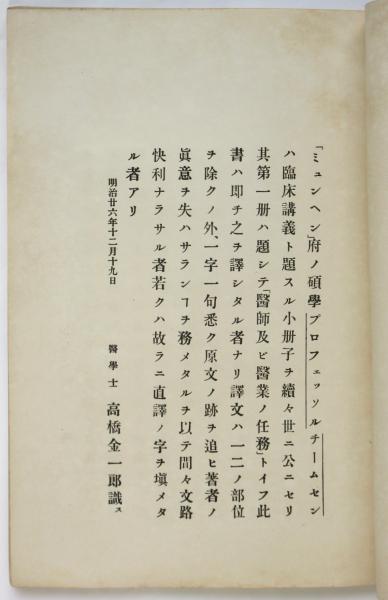 「ミュンヘン」府ノ碩學プロフェッソルチームセン
ハ臨床講義ト題スル小册子ヲ續々世ニ公ニセリ
其第一册ハ題シテ「醫師及ビ醫業ノ任務」トイフ此
書ハ即チ之ヲ譯シタル者ナリ譯文ハ一二ノ部位
ヲ除クノ外、一字一句悉ク原文ノ跡ヲ追ヒ著者ノ
眞意ヲ失ハサランヿヲ務メタルヲ以テ間々文路
快利ナラサル者若クハ故ラニ直譯ノ字ヲ塡メタ
ル者アリ
明治廿六年十二月十九日
醫學士 高橋金一郎識ス